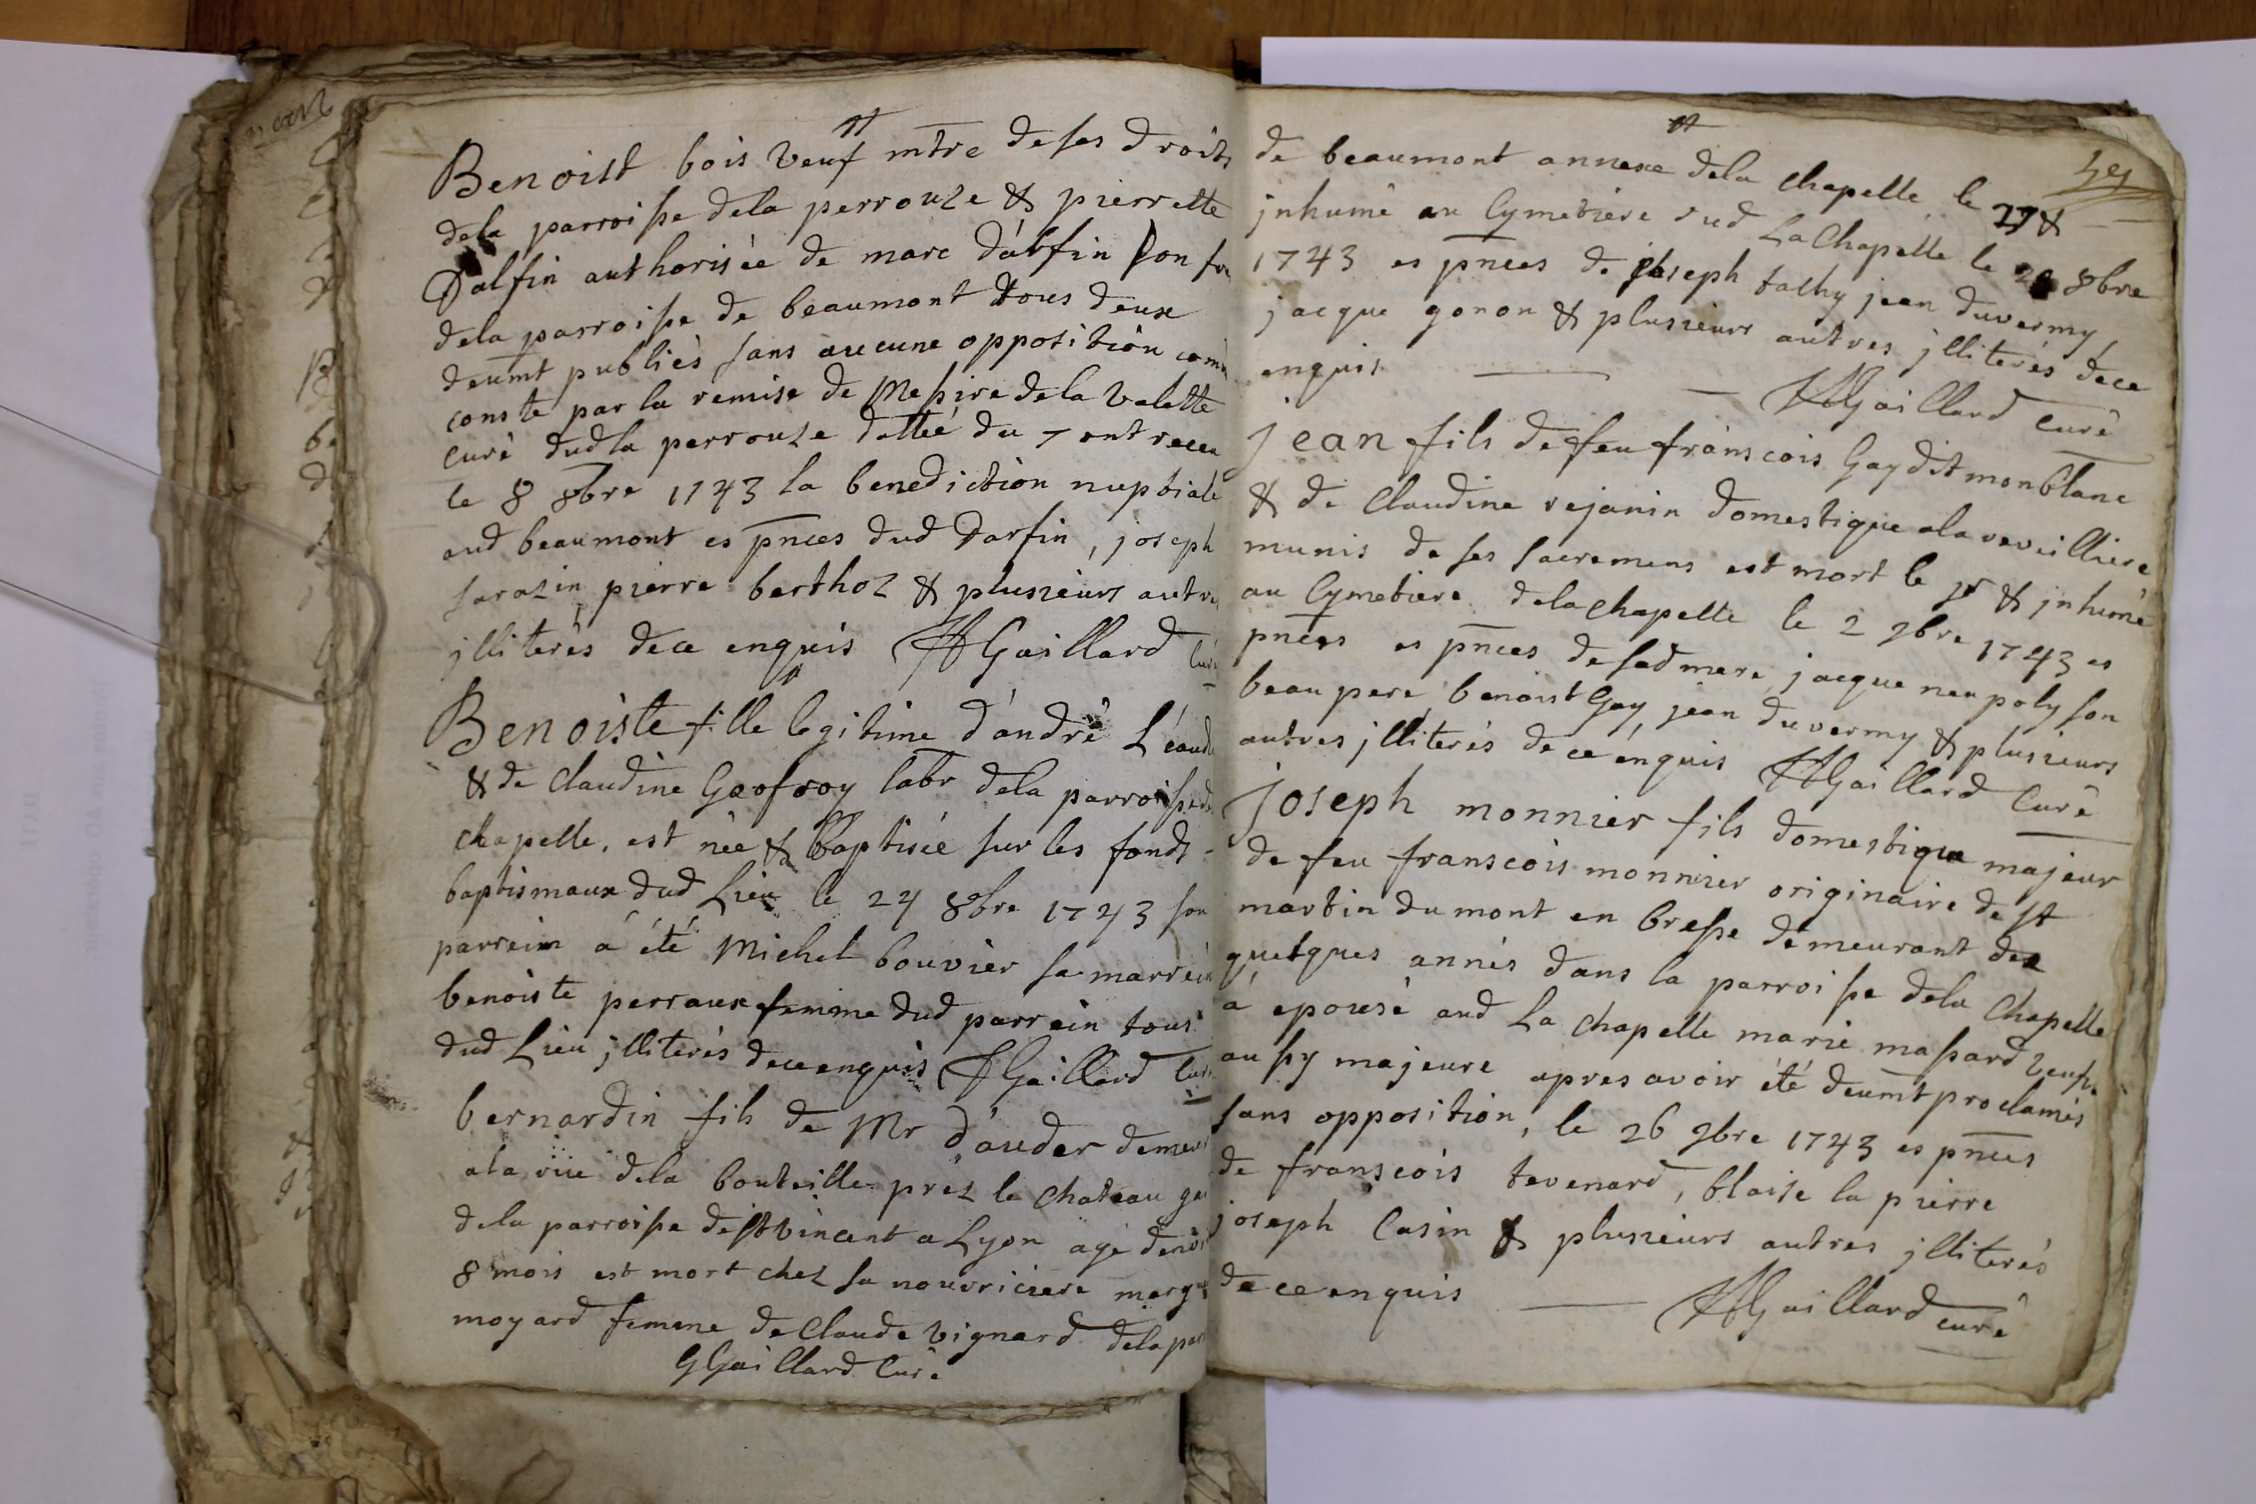 Benoist bois veuf mtre de ses droits
dela parroisse dela perrouze & pierrette
Dalfin authorisée de marc dalfin son
dela parroisse de beaumont tous deux
deumt publiès sans aucune opposition
conste par la remise de Messire dela valette
curè dud la perrouze dattée du 7 ont receu
le 8 8bre 1743 la benediction nuptiale
aud beaumont es pnces dud darfin, joseph
sarazin pierre berthoz & plusieurs autres
jlliterès de ce enquis Gaillard Curè
Benoiste fille legitime d'andrè
& de Claudine Geofroy labr dela parroisse
chapelle, est nèe & baptisèe sur les fonds
baptismaux dud Lieu le 24 8bre 1743 son
parrein á été Michel bouvier sa marrein
benoiste perraux femme dud parrein tous
dud Lieu jlliterès de ce enquis Gaillard Curè
bernardin fils de Mr d'auder
ala rüe dela bouteille prez le chateau
dela parroisse de st vincent a Lyon agè
8 mois est mort chez sa nourriciere
moyard femme de Claude vignard dela
Gaillard Curè
de beaumont annexe dela chapelle le &
jnhumè au Cymetiere dud La Chapelle le 8bre
1743 es pnces de joseph tachy jean duvermy
jacque gonon & plusieurs autres jlliterés de ce
enquis Gaillard curè
jean fils de feu franscois Gay dit monblanc
& de Claudine rejanin domestique ala reveilliere
munis de ses sacremens est mort le 1r & jnhumè
au Cymetiere dela chapelle le 2 9bre 1743 es
pnces es pnces de sad mere jacque nempoly son
beau pere benoist Gay jean duvermy & plusieurs
autres jlliterés de ce enquis Gaillard Curè
joseph monnier fils domestique majeur
de feu franscois monnier originaire de st
martin du mont en bresse demeurant des
quelques annès dans la parroisse dela Chapelle
a epousè aud La chapelle marie massard veufve
aussy majeure apres avoir été deumt proclamès
sans opposition, le 26 9bre 1743 es pnces
de franscois tevenard, blaise la pierre
joseph Casin & plusieurs autres jlliterés
de ce enquis Gaillard curè